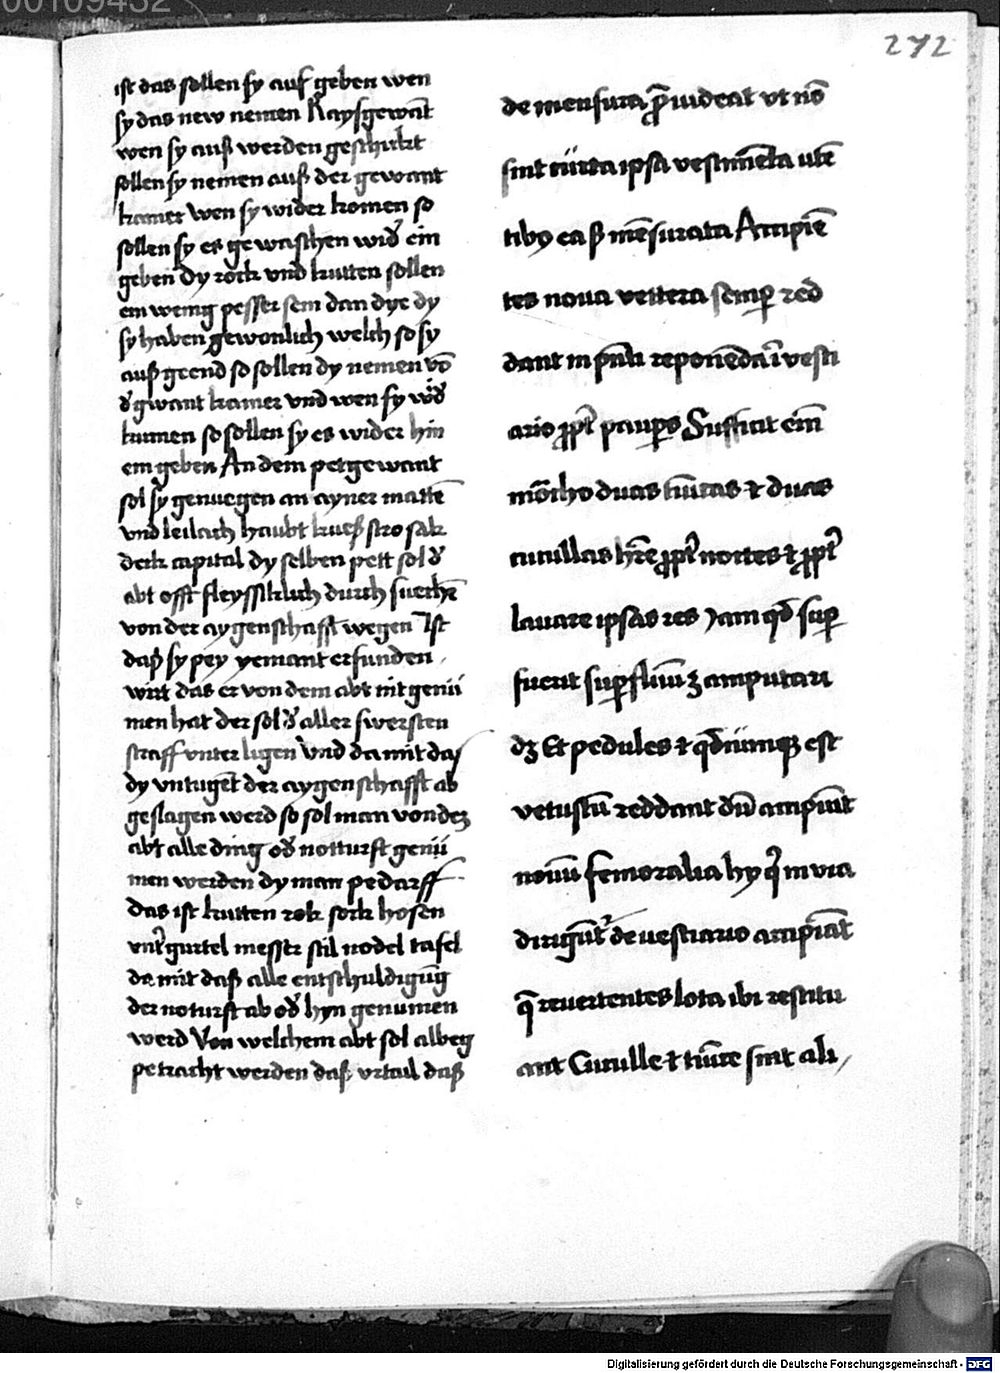 272
ist das sollen sy auf geben wen
sy das new nemen Raysgewāt
wen sy auß werden geschikt
sollen sy nemen auß der gewant
kamer wen sy wider komen so
sollen sy es gewaschen wid̄ ein
geben dy rock vnd kutten sollen
ein wenig pesser sein dan dye dy
sy haben gewonlich welch so sy
auß geend so sollen dy nemen vō
d̄ gwant kamer vnd wen sy wid̄
kumen so sollen sy es wider hin
ein geben An dem petgewant
sol sy genuegen an ayner mattē
vnd leilach haubt kuß stro sak
deck capital dy selben pett sol d̄
abt offt fleyssiklich durch suechē
von der aygenschafft wegen Ist
daß sy pey yemant erfunden
wirt das er von dem abt nit genū
men hat der sol d̄ aller swersten
straff vnter ligen vnd da mit das
dy vntugēt der aygenschafft ab
geslagen werd so sol man von dez
abt alle ding od̄ notturft genū
men werden dy man pedarff
das ist kutten rok sock hosen
vntʼgurtel messer stil nodel tafel
da mit daß alle entschuldigūg
der noturft ab od̄ hyn genumen
werd Von welchem abt sol albeg
petracht werden daß vrtail daß
de mensura p̄uideat vt nō
sint curta ipsa vestimēta utē
tibꝯ ea ß mēsurata Accipiē
tes noua vetera semꝑ red
dant in pn̄ti reponēda ī vesti
ario ꝓpt̄ pauꝑes Sufficit eīm
mōcho duas tunicas ⁊ duas
cucullas hr̄e ꝓpt̄ noctes ⁊ ꝓpt̄
lauare ipsas res Jam qd̄ suꝑ
fuerit suꝑfluū ē amputari
dꝫ Et pedules ⁊ qd̄cūmqꝫ est
vetustū reddant dū accipiūt
nouū femoralia hy q̄ in via
dirigūt̄ de vestiario accipiāt
q̄ reuertentes lota ibi restitu
ant Cuculle ⁊ tunice sint ali
Digitalisierung gefördert durch die Deutsche Forschungsgemeinschaft - DFG